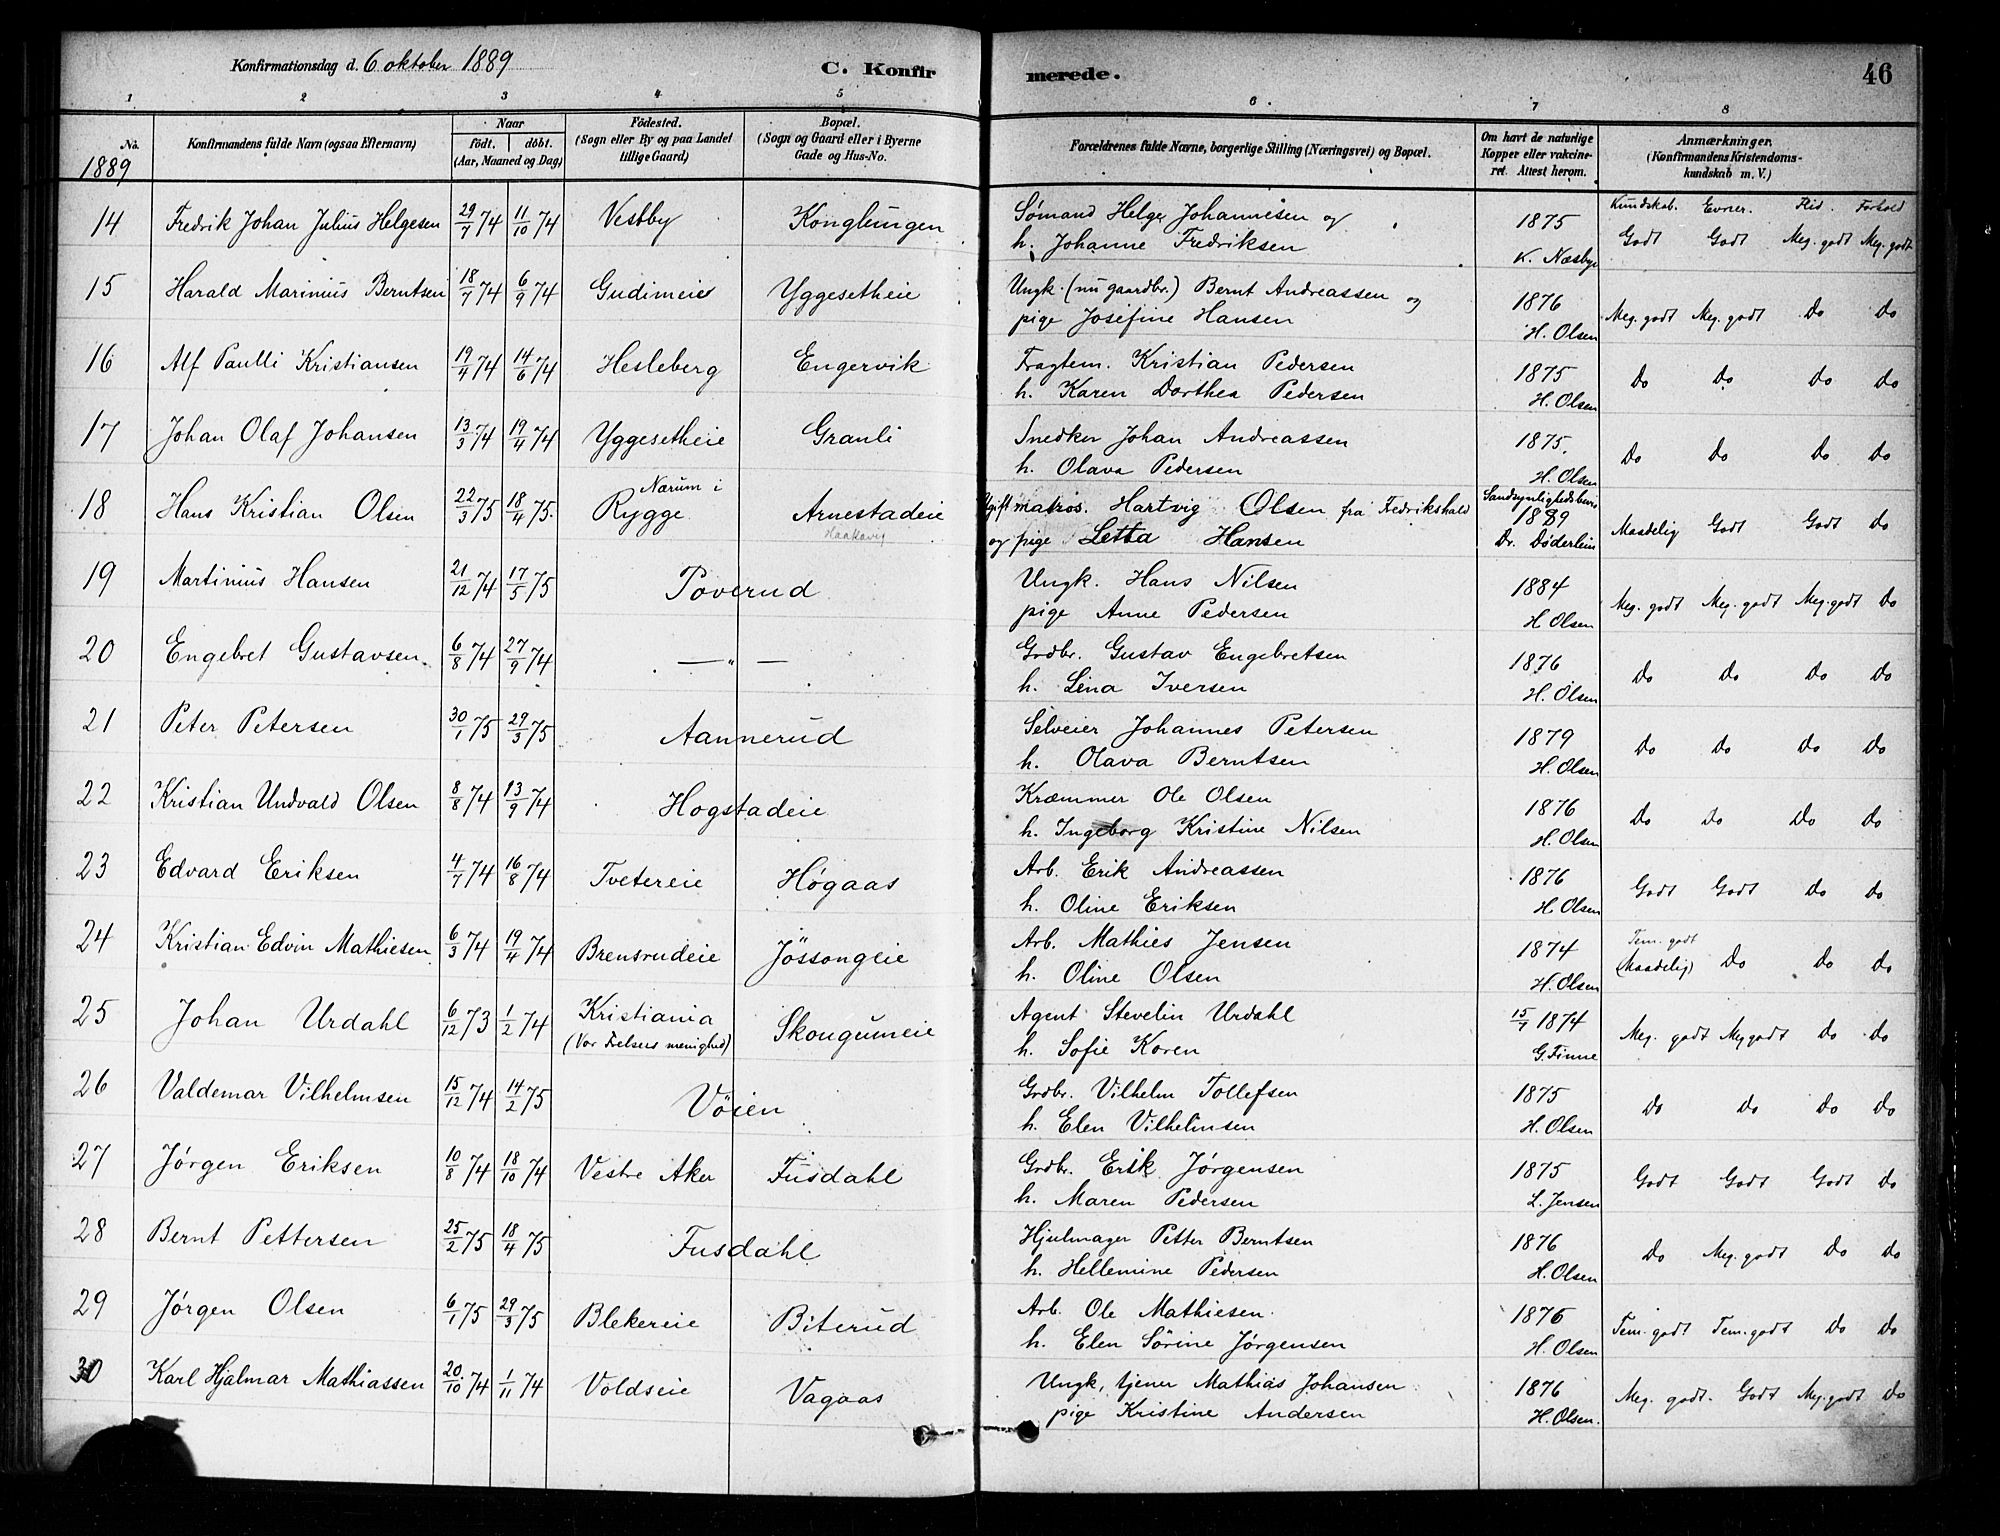 Konfirmationsdag d. 6 oktober 1889
C. Konfirmerede.
46
1 2 3 4 5 6 7 8
No. 1889
Konfirmandens fulde Navn (ogsaa Efternavn)
Naar
födt. döbt.
(Aar, Maaned og Dag)
Födested.
(Sogn eller By og paa Landet
tillige Gaard)
Bopæl.
(Sogn og Gaard eller i Byerne
Gade og Hus-No.
Forældrenes fulde Navne, borgerlige Stilling (Næringsvei) og Bopæl.
Om havt de naturlige
Kopper eller vakcine-
ret. Attest herom.
Anmærkninger.
(Konfirmandens Kristendoms-
kundskab m. V.)
Kundskab. Evner. Flid. Forhold
14 Fredrik Johan Julius Helgesen 29/7 74 11/10 74 Vestby Konglungen Sømand Helge Johannesen og 1875 Godt Godt Meg. godt Meg. godt
h. Johanne Fredriksen K. Næsbye
15 Harald Marinius Berntsen 18/7 74 6/9 74 Gudimeie Yggesetheie Ungk. (nu gaardbr.) Bernt Andreassen og 1876 Meg. godt Meg. godt Do Do
pige Josefine Hansen H. Olsen
16 Alf Paulli Kristiansen 19/4 74 14/6 74 Hesleberg Engervik Fragtem. Kristian Pedersen 1875 Do Do Do Do
h. Karen Dorthea Pedersen H. Olsen
17 Johan Olaf Johansen 13/3 74 19/4 74 Yggesetheie Granli Snedker Johan Andreassen 1875. Do Do Do Do
h. Olava Pedersen H. Olsen
18 Hans Kristian Olsen 22/3 75 18/4 75. Nærum i Rygge Arnestadeie Ugift matros. Hartvig Olsen fra Fredrikshald Sandsynlighedsbevis 1889 Maadelig Godt Godt Do
Haakavig og pige Letta Hansen Dr. Døderlein
19 Martinius Hansen 21/12 74 17/5 75 Poverud Ungk. Hans Nilsen 1884 Meg. godt Meg. godt Meg. godt Do
pige Anne Pedersen H Olsen
20 Engebret Gustavsen. 6/8 74 27/9 74 — „ — Grdbr. Gustav Engebretsen 1876 Do Do Do Do
h. Lina Iversen H. Olsen
21 Peter Petersen 30/1 75 29/3 75 Aannerud Selveier Johannes Petersen 1879 Do Do Do Do
h. Olava Berntsen H. Olsen
22 Kristian Undvald Olsen 8/8 74 13/9 74 Hogstadeie Kræmmer Ole Olsen 1876 Do Do Do Do
h. Ingeborg Kristine Nilsen H. Olsen
23 Edvard Eriksen 4/7 74 16/8 74 Tvetereie Høgaas Arb. Erik Andreassen 1876 Godt Godt Do Do
h. Oline Eriksen H Olsen
24 Kristian Edvin Mathiesen 6/3 74 19/4 74 Brensrudeie Jössongeie Arb. Mathies Jensen 1874 Tem. godt (Maadelig) Do Do Do
h. Oline Olsen H. Olsen
25 Johan Urdahl 6/12 73 1/2 74 Kristiania Skougumeie Agent Stevelin Urdahl 15/7 1874 Meg. godt Meg godt Do Do
(Vor Frelsers menighed) h. Sofie Koren G. Finne
26 Valdemar Vilhelmsen 15/12 74 14/2 75 Vöien Grdbr. Vilhelm Tollefsen 1875 Do Do Do Do
h. Elen Vilhelmsen H. Olsen
27 Jørgen Eriksen 10/8 74 18/10 74 Vestre Aker Fusdahl Grdbr. Erik Jørgensen 1875 Godt Godt Godt Do
h. Maren Pedersen L. Jensen
28 Bernt Pettersen 25/2 75 18/4 75 Fusdahl Hjulmager Petter Berntsen 1876 Do Meg. godt Do Do
h. Hellemine Pedersen H. Olsen
29 Jørgen Olsen 6/1 75 29/3 75 Blekereie Biterud Arb. Ole Mathiesen. 1876 Tem. godt Tem. godt Do Do
h. Elen Sörine Jørgensen H. Olsen
30 Karl Hjalmar Mathiassen 20/10 74 1/11 74 Voldseie Vagaas Ungk, tjener Mathias Johansen 1876 Meg. godt. Godt Meg. godt Do
pige Kristine Andersen H. Olsen.